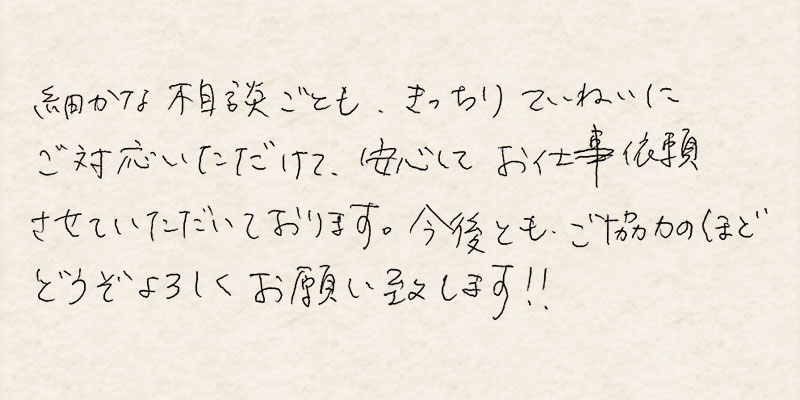 細かな相談ごとも、きっちりていねいに
ご対応いただけて、安心してお仕事依頼
させていただいております。今後とも、ご協力のほど
どうぞよろしくお願い致します!!